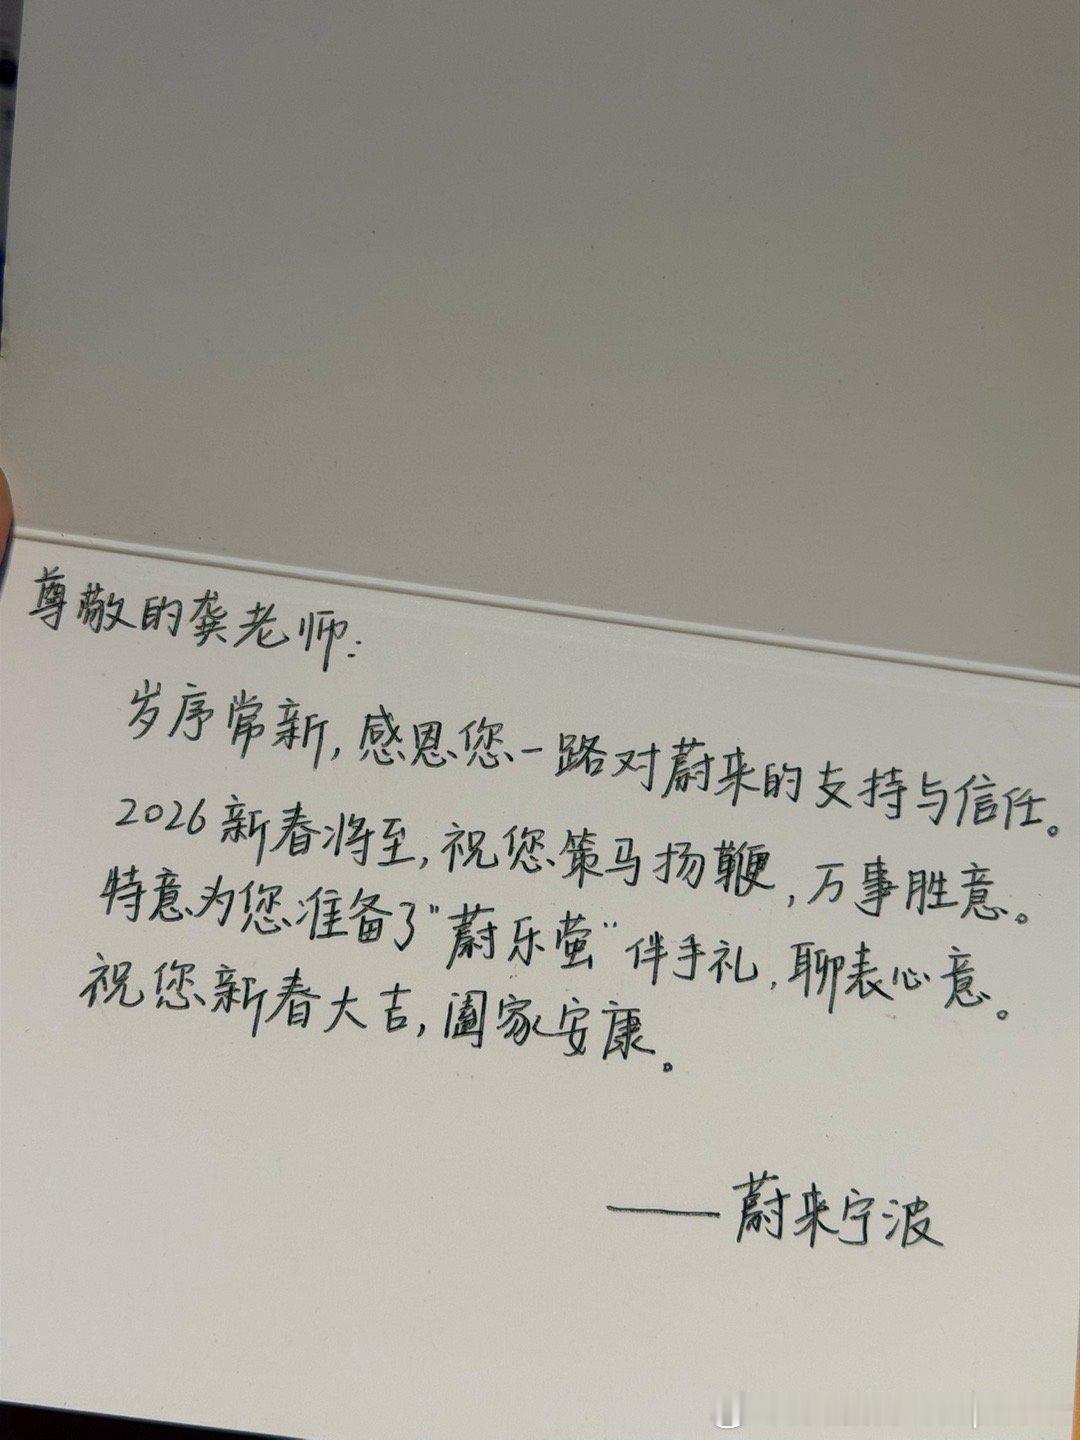 尊敬的龚老师:
岁序常新,感恩您一路对蔚来的支持与信任。
2026新春将至,祝您策马扬鞭,万事胜意。
特意为您准备了"蔚乐萤"伴手礼,聊表心意。
祝您新春大吉,阖家安康。
——蔚来宁波